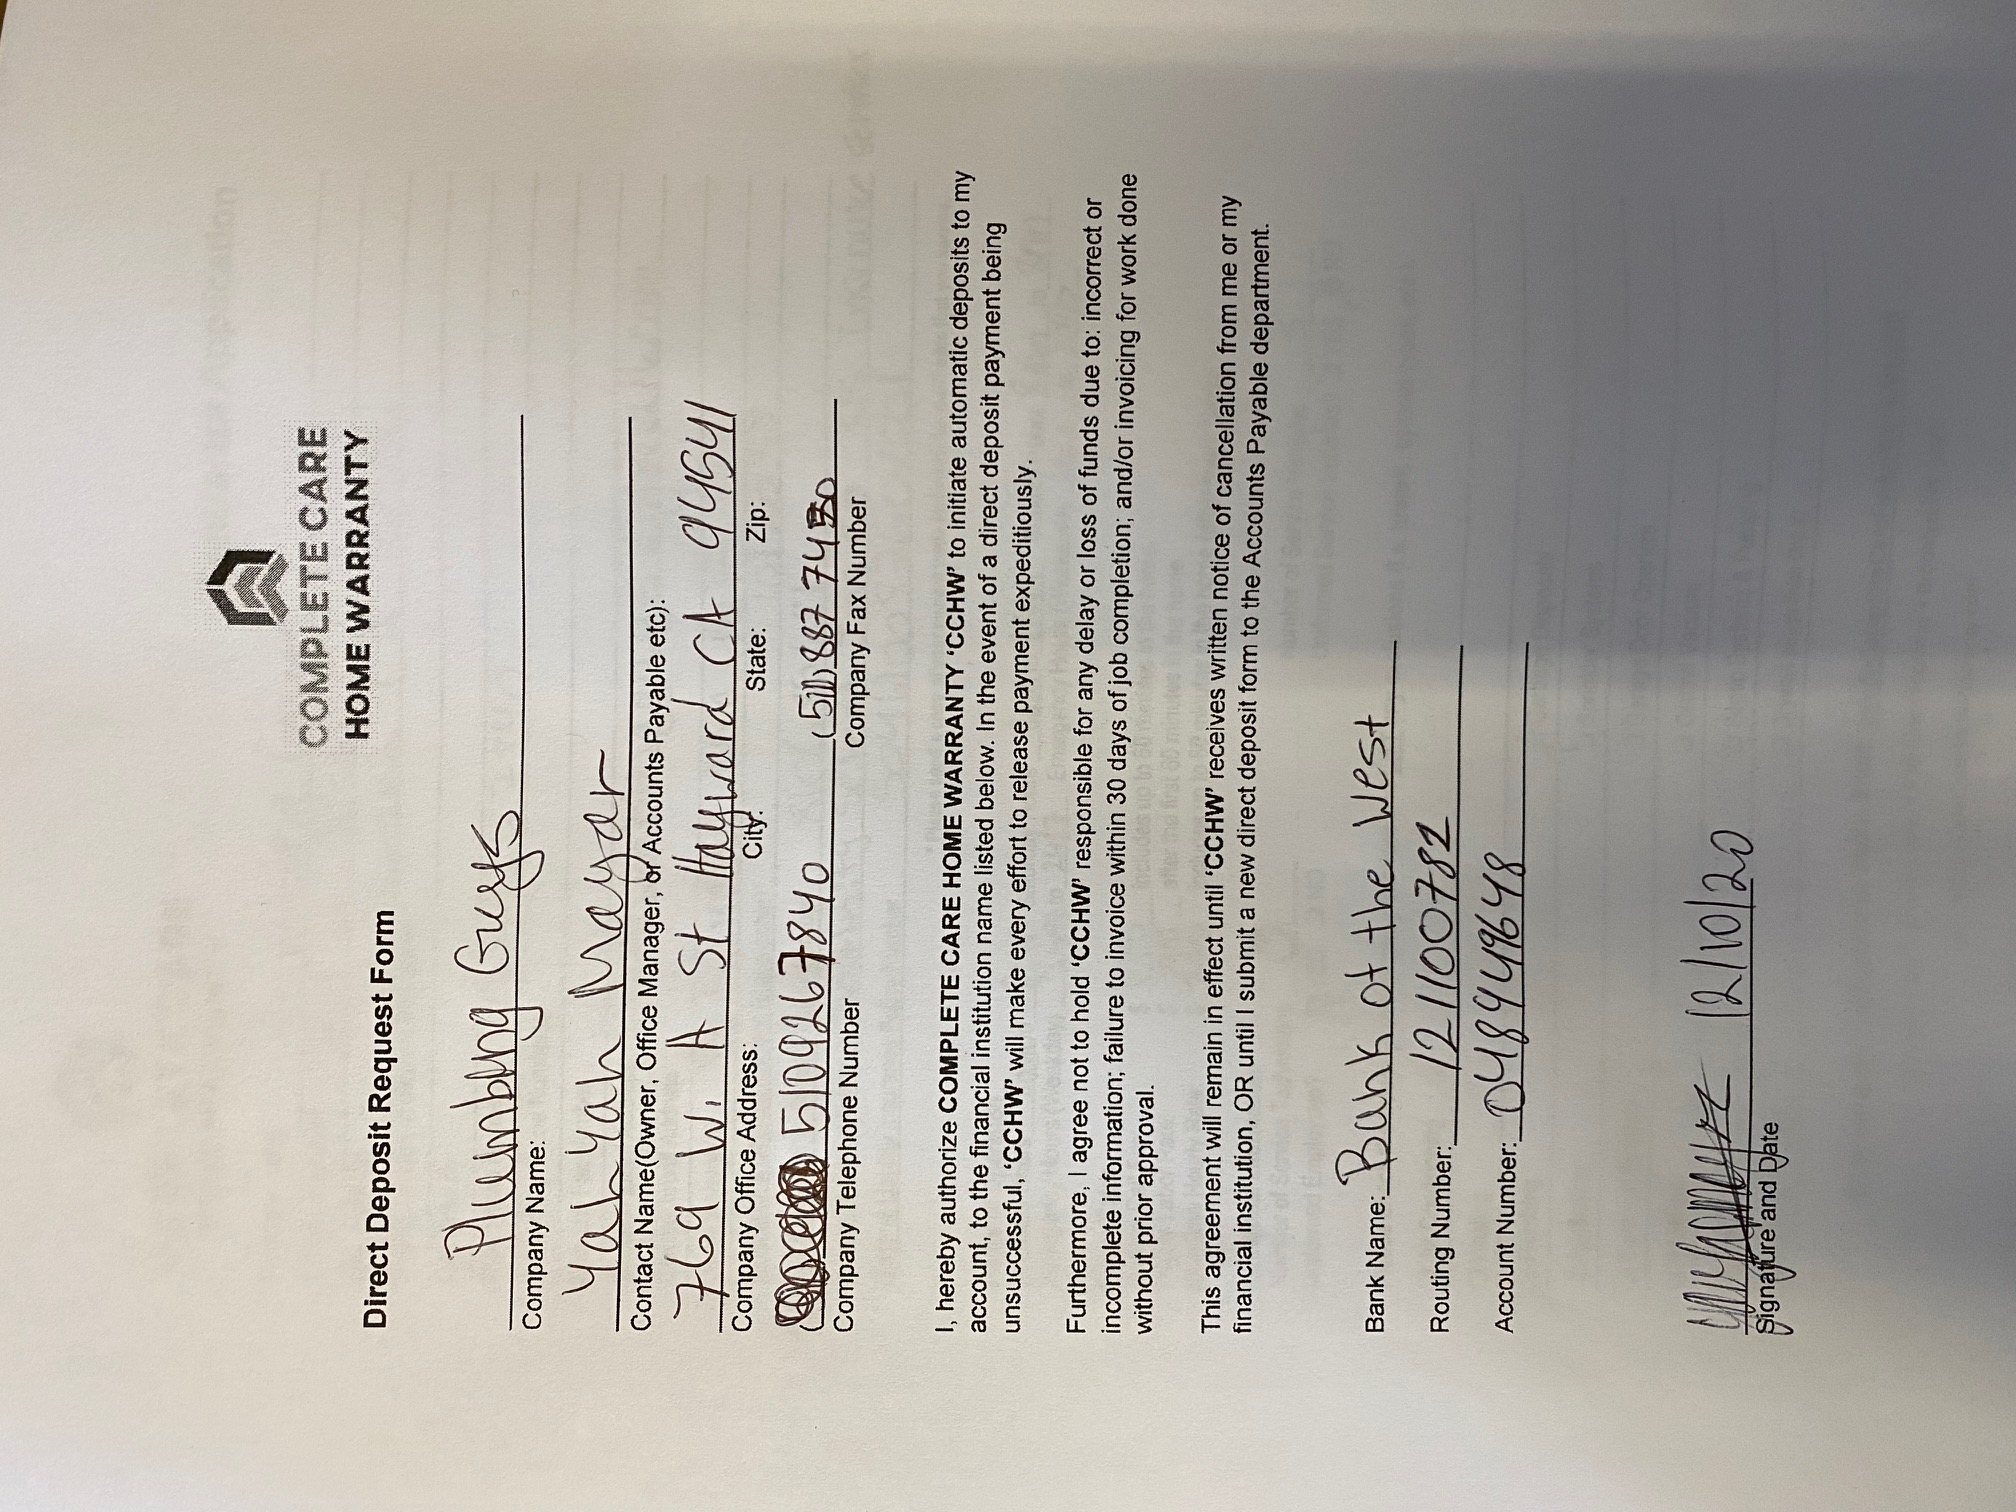 COMPLETE CARE
HOME WARRANTY
Direct Deposit Request Form
Plumbing Guys
Company Name:
Yahyah Mayar
Contact Name(Owner, Office Manager, or Accounts Payable etc):
769 W. A St Hayward CA 94541
Company Office Address: City: State: Zip:
5109267840 (510) 887 74
Company Telephone Number Company Fax Number
I, hereby authorize COMPLETE CARE HOME WARRANTY ‘CCHW’ to initiate automatic deposits to my
account, to the financial institution name listed below. In the event of a direct deposit payment being
unsuccessful, ‘CCHW’ will make every effort to release payment expeditiously.
Furthermore, I agree not to hold ‘CCHW’ responsible for any delay or loss of funds due to: incorrect or
incomplete information; failure to invoice within 30 days of job completion; and/or invoicing for work done
without prior approval.
This agreement will remain in effect until ‘CCHW’ receives written notice of cancellation from me or my
financial institution, OR until I submit a new direct deposit form to the Accounts Payable department.
Bank Name: Bank of the West
Routing Number: 121100782
Account Number: 048949648
12/10/20
Signature and Date